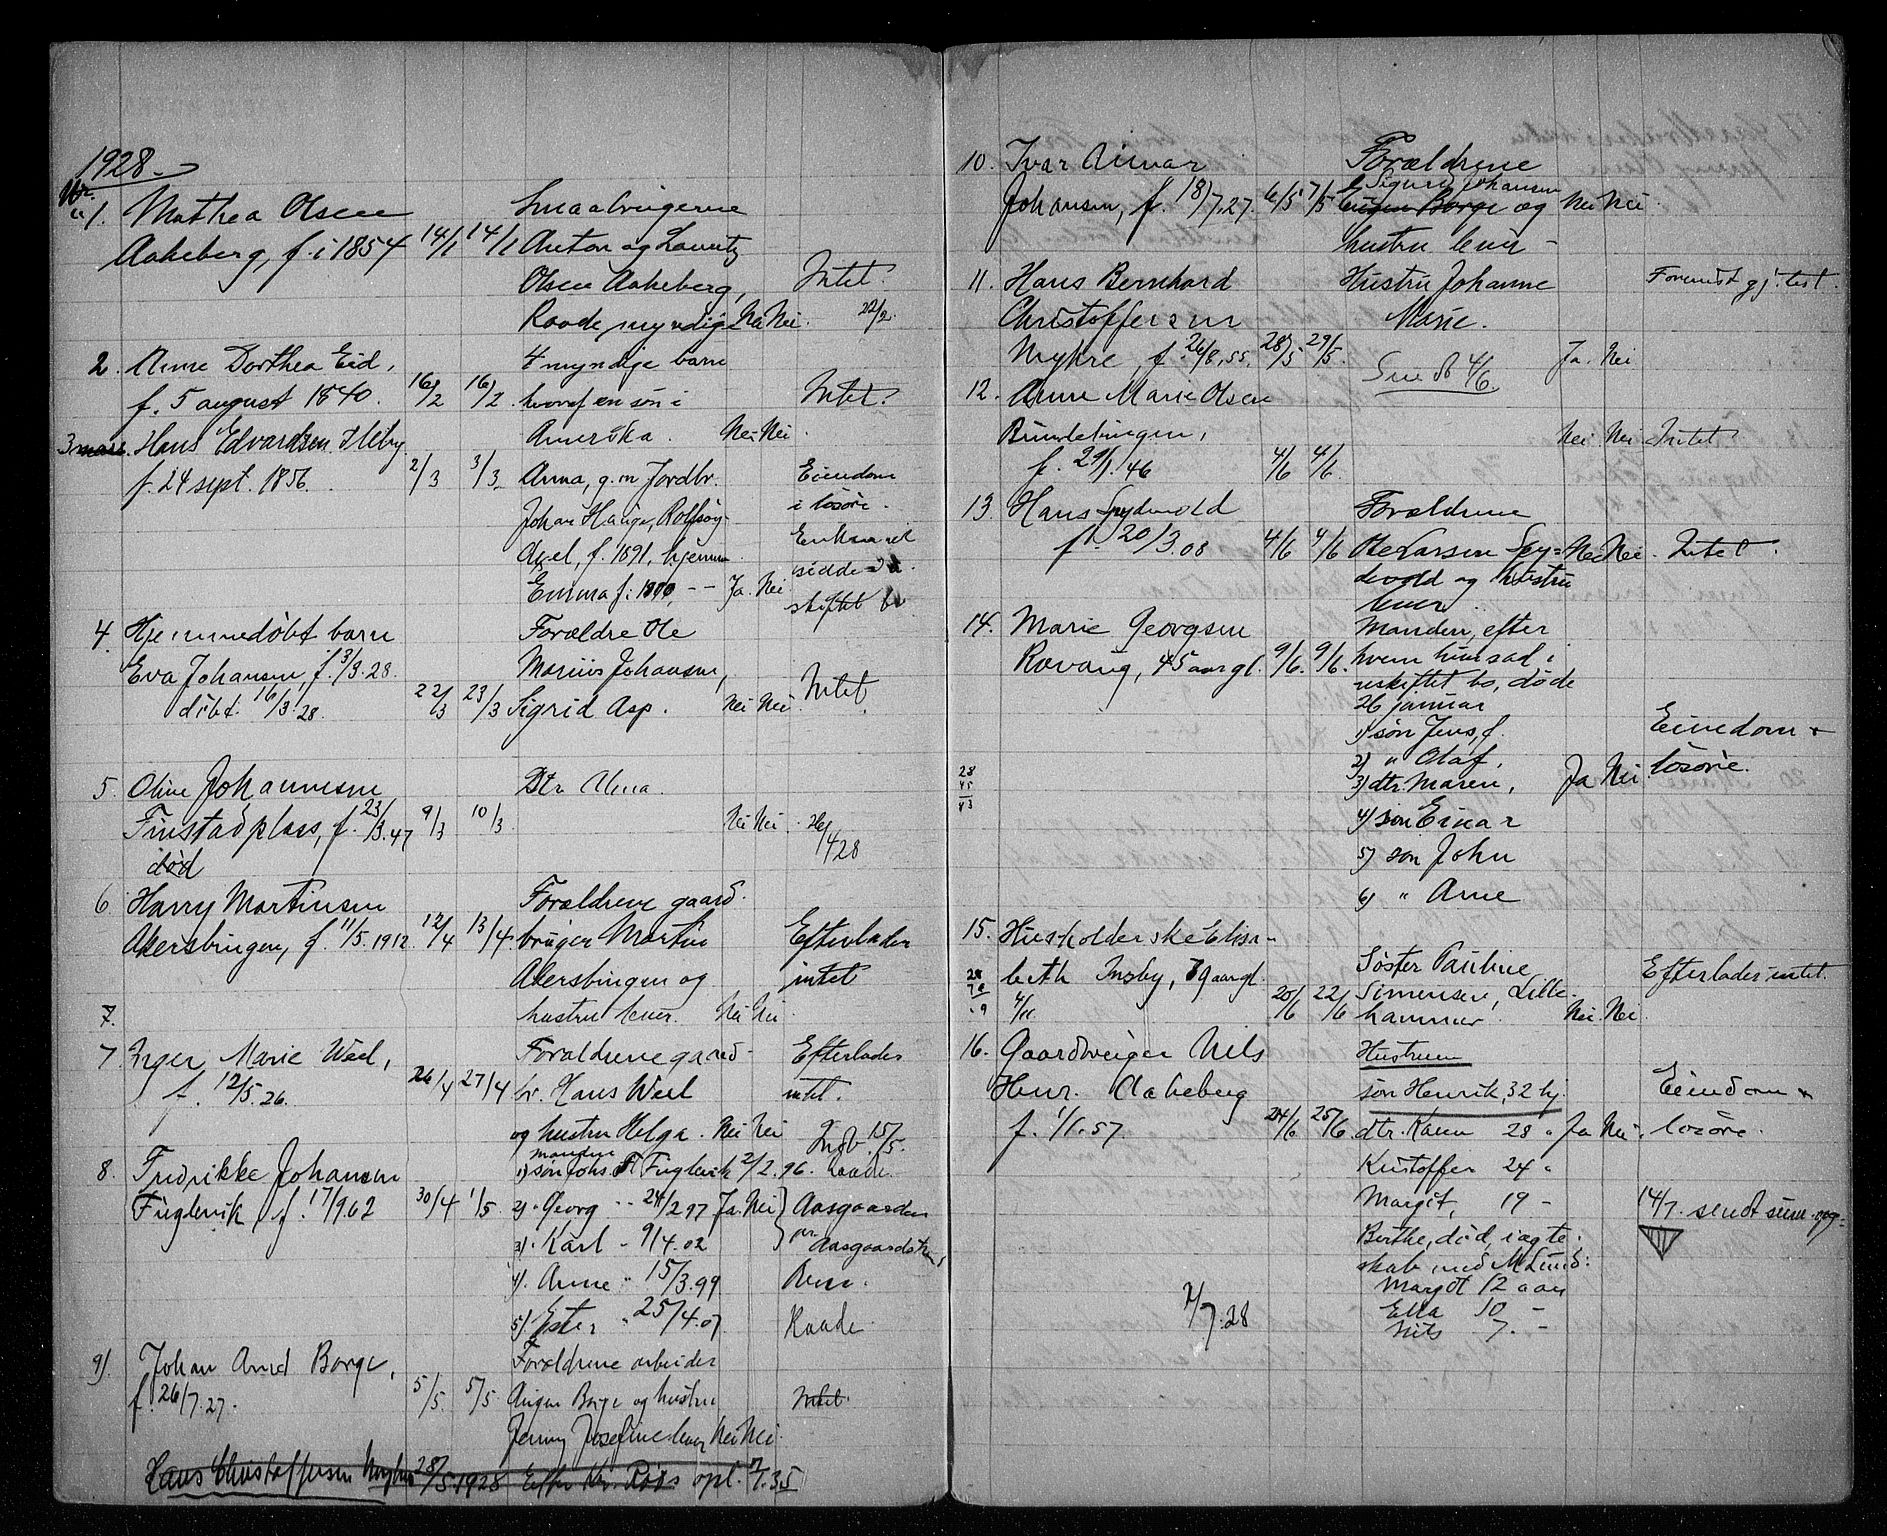 1928.
Nr.
1. Mathea Olsen Smaabrugerne
Aakeberg, f. i 1854 14/1 14/1 Anton og Lauritz
Olsen Aakeberg, Intet.
Raade, myndige Nei Nei. 22/2.
2. Anne Dorthea Eid, 4 myndige barn
f. 5 august 1840. 16/2 16/2 hvoraf en søn i Intet.
Amerika. Nei Nei.
3 Hans Edvardsen
f. 24 sept. 1856. 2/3 3/3 Anna, g. m. Jordbr. Eiendom
Johan Hauge, Rolfsøy i løsøre.
Axel, f. 1891, hjemme Enkem
Emma f. , -- Ja. Nei. skiftet bo
4. Hjemmedøbt barn Forældre Ole
Eva Johansen, f. 3/3.28. Marius Johansen,
døbt. 16/3.28. 22/3 23/3 Sigrid Asp. Nei Nei. Intet.
5. Oline Johannesen Dtr. Anna.
Finstadplass, f. 23/3.47 9/3 10/3 Nei Nei. 26/4 28
død
6. Harry Martinsen Forældrene gaard.
Akersbingen, f. 11/5.1912. 12/4 13/4. bruger Martin Efterlader
Akersbingen og intet
7. hustru lever. Nei Nei.
7. Inger Marie Weel, Forældrene gaard- Efterlader
f. 12/5.26. 26/4 27/4 br. Hans Weel intet.
og hustru Helga. Nei Nei Indb. 15/5.
manden
8. Fredrikke Johansen 1) søn Johs. Fuglevik 2/2.96. Raade.
Fuglevik, f. 17/9 62 30/4 1/5. 2) " Georg " 24/2 97 Ja. Nei } Aasgaarden
3) " Karl - 9/4.02 Aasgaardstr
4). Anne " 15/3.99
5) Ester " 25/4.07 Raade
Forældrene arbeider
9). Johan Arnd Borge,
f. 26/7.27. 5/5. 5/5. Borge og hustru Intet.
Jenny Josefine lever Nei Nei.
Hans Christoffersen Myhre 28/5.1928 opl. 7/7.35
10. Ivar Forældrene
Sigurd Johansen
Johansen, f. 18/7.27. 6/5 7/5 Eugen Borge og Nei Nei.
hustru lever -
11. Hans Bernhard Hustru Johanne test.
Christoffersen Marie.
Myhre, f. 26/8.55. 28/5 29/5. Ja. Nei
4/6.
12. Anne Marie Olsen
Nei. Nei Intet
f. 29/1.46 4/6 4/6.
13. Hans Spydevold Forældrene
f. 20/3.08 4/6 4/6 Ole Larsen Spy- Nei Nei. Intet.
devold og hustru
lever.
14. Marie Georgsen Manden, efter
Ravaug, 45 aar gl. 9/6. 9/6. hvem hun sad i
uskiftet bo, døde
26 januar
1) søn Jens, f. Eiendom +
2) " Olaf,
28 3) dtr. Maren, Ja Nei løsøre.
45
83
4) søn Einar
5) søn John
6) " Arne
15. Husholderske Elisa-
beth Insby, 79 aar gl. Søster Pauline Efterlader intet.
4/11 20/6 22/6 Simensen, Lille-
hammer. Nei. Nei.
16. Gaardbruger Nils Hustruen
Henr. Aakeberg søn Henrik, 32 hj. Eiendom +
f. 1/1.57. 24/6 25/6 dtr. Karen 28 " Ja Nei. løsøre.
Kristoffer 24 "
Margit, 19 - 14/7. sendt
Berthe, død, i ægte-
skab med M Lund:
Margot 12 aar
2/7.28 Ella 10 -
Nils 7. -